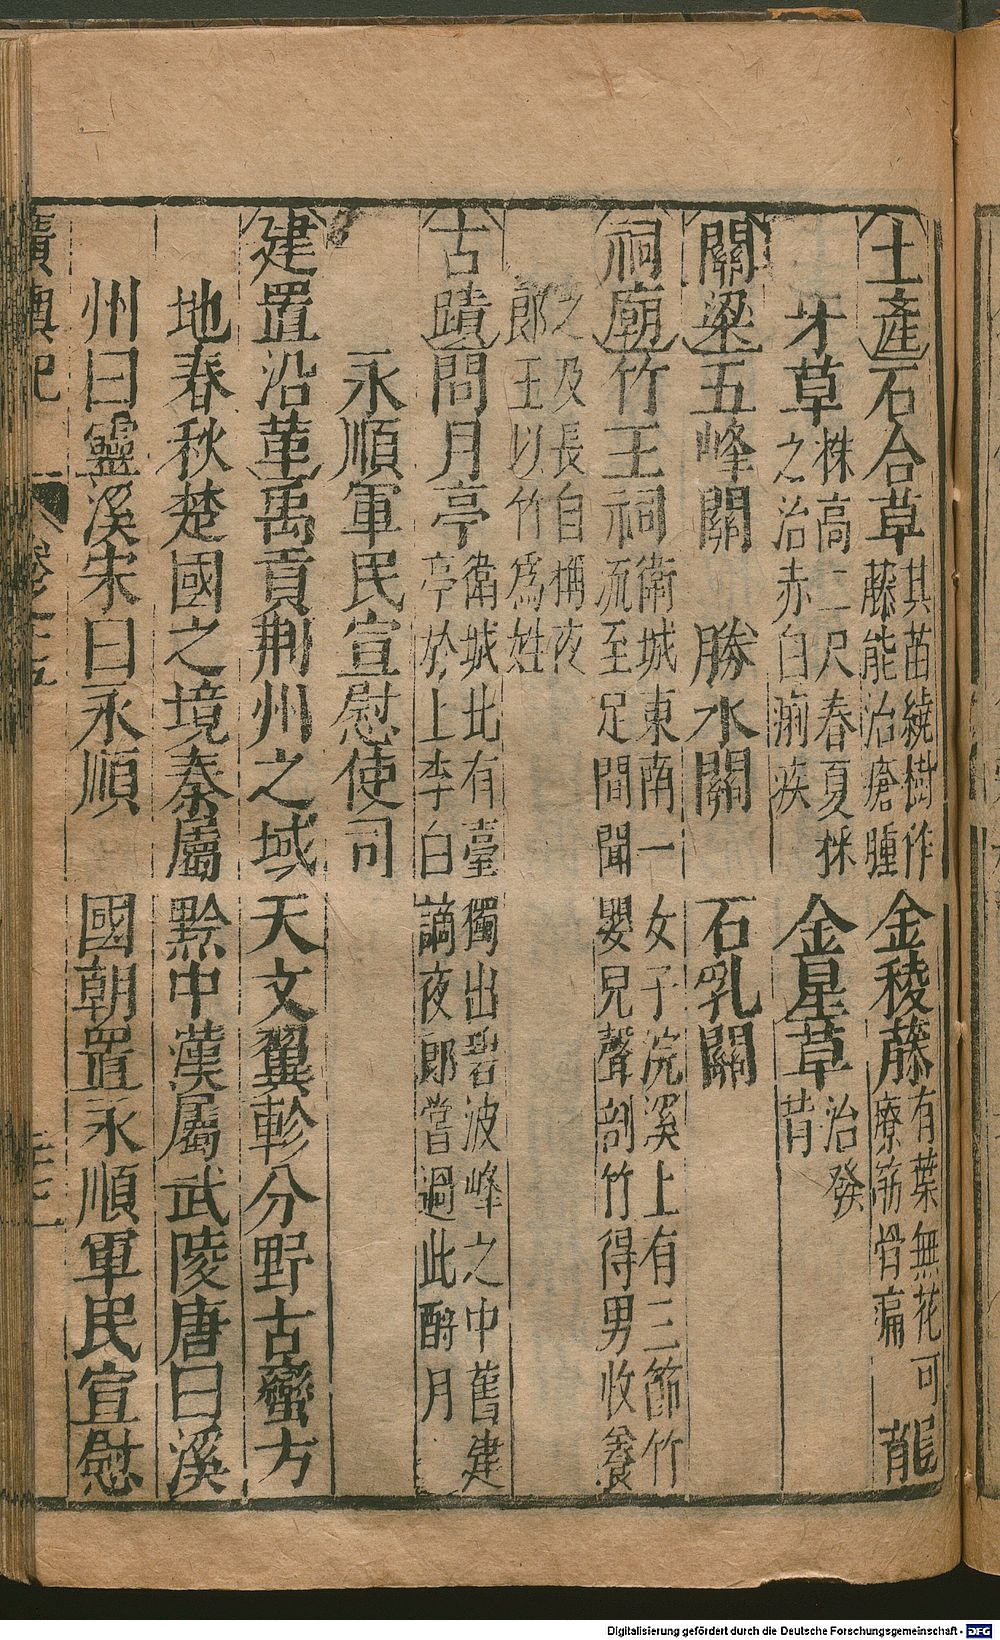 土產石合草其苗繞樹作藤能治瘡腫 金稜藤有葉無花可療筋骨痛 龍
牙草株高二尺春夏採之治赤白痢疾 金星草治發背
關梁五峰關 勝水關 石乳關
祠廟竹王祠衛城東南一女子浣溪上有三節竹流至足間聞嬰兒聲剖竹得男收養
之及長自稱夜郎王以竹爲姓
古蹟問月亭衛城北有臺獨出碧波峰之中舊建亭於上李白謫夜郎嘗過此酧月
永順軍民宣慰使司
建置沿革禹貢荆州之域天文翼軫分野古蠻方
地春秋楚國之境秦屬黔中漢屬武陵唐曰溪
州曰靈溪宋曰永順國朝置永順軍民宣慰
廣輿記 卷之
Digitalisierung gefördert durch die Deutsche Forschungsgemeinschaft - DFG